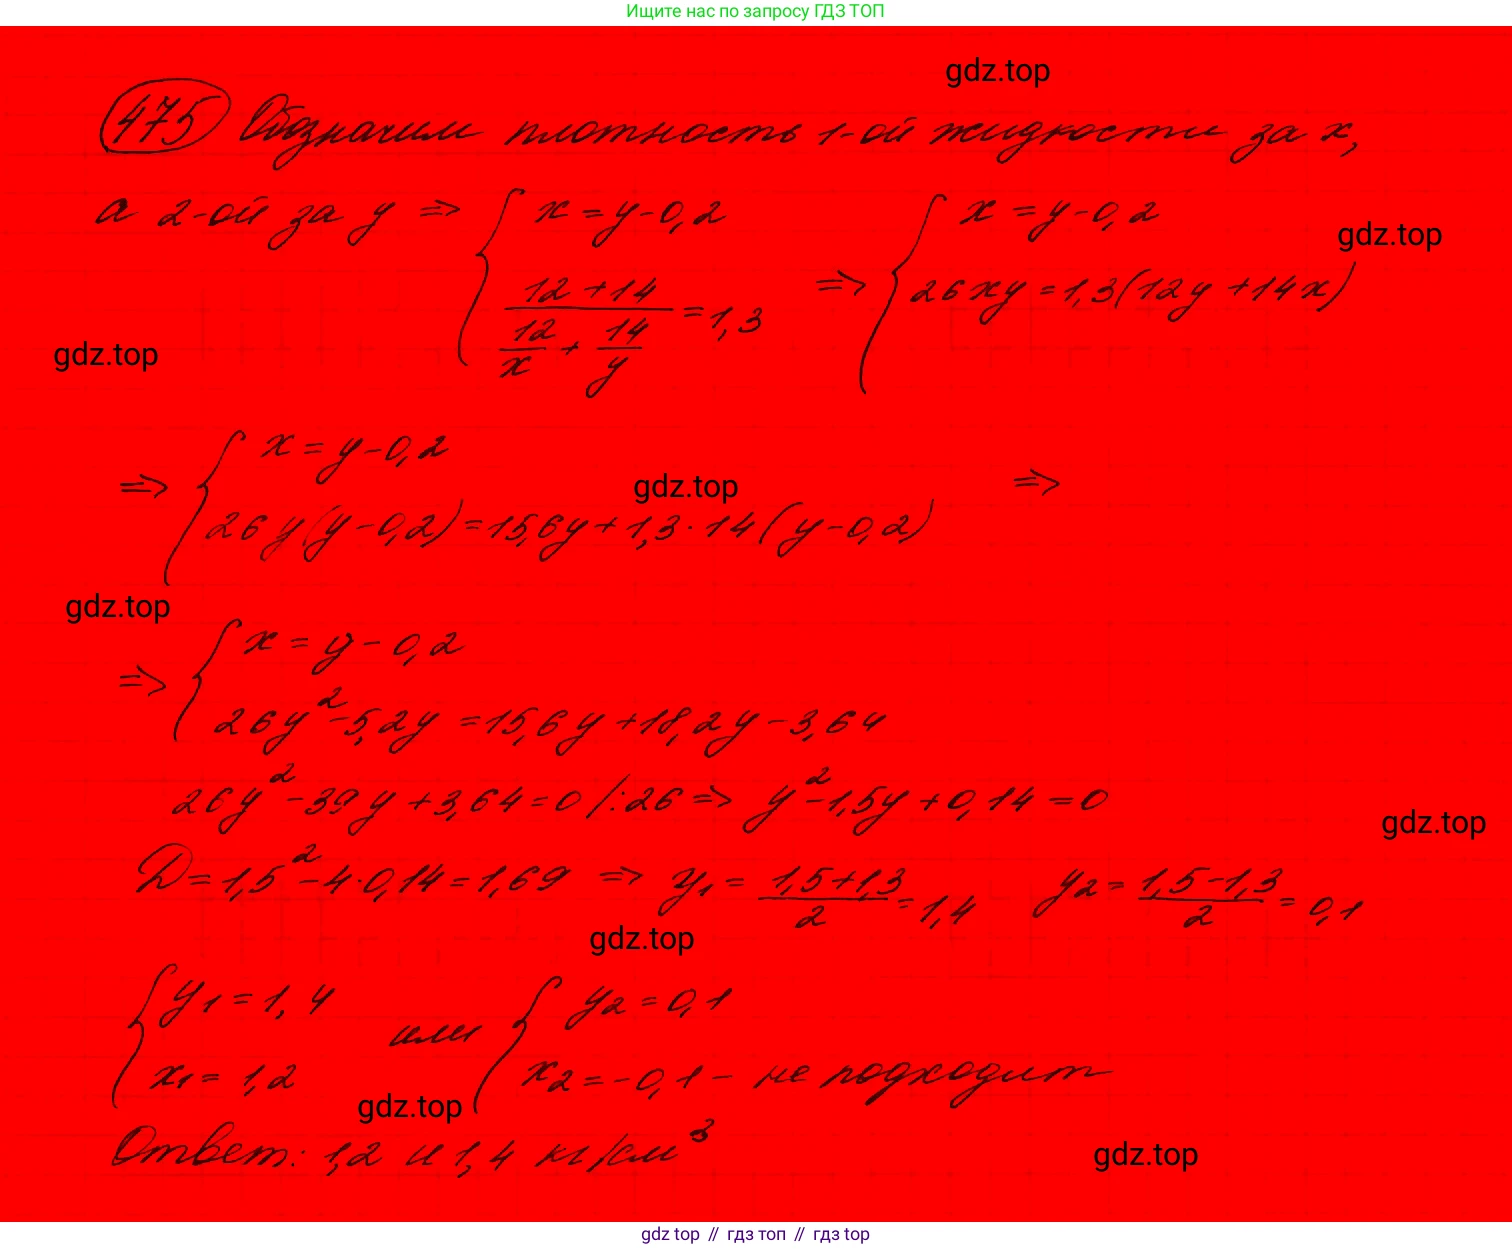 Ищите нас по запросу ГДЗ ТОП
gdz.top
475 Обозначим плотность 1-ой жидкости за x,
а 2-ой за y ⇒ { x = y - 0,2 ; (12 + 14)/(12/x + 14/y) = 1,3 ⇒ { x = y - 0,2 ; 26xy = 1,3(12y + 14x)
gdz.top
gdz.top
⇒ { x = y - 0,2
26y(y - 0,2) = 15,6y + 1,3 · 14(y - 0,2) ⇒
gdz.top
gdz.top
⇒ { x = y - 0,2
26y² - 5,2y = 15,6y + 18,2y - 3,64
26y² - 39y + 3,64 = 0 /:26 ⇒ y² - 1,5y + 0,14 = 0
gdz.top
D = 1,5² - 4·0,14 = 1,69 ⇒ y₁ = (1,5 + 1,3)/2 = 1,4 y₂ = (1,5 - 1,3)/2 = 0,1
gdz.top
{ y₁ = 1,4 ; x₁ = 1,2 или { y₂ = 0,1 ; x₂ = -0,1 - не подходит
gdz.top
Ответ: 1,2 и 1,4 кг/см³
gdz.top
gdz top // гдз топ // gdz top